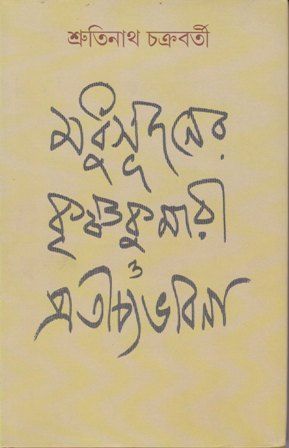 শ্রুতিনাথ চক্রবর্তী
মধুসূদনের
কৃষ্ণকুমারী
ও
প্রতীচ্যভাবনা